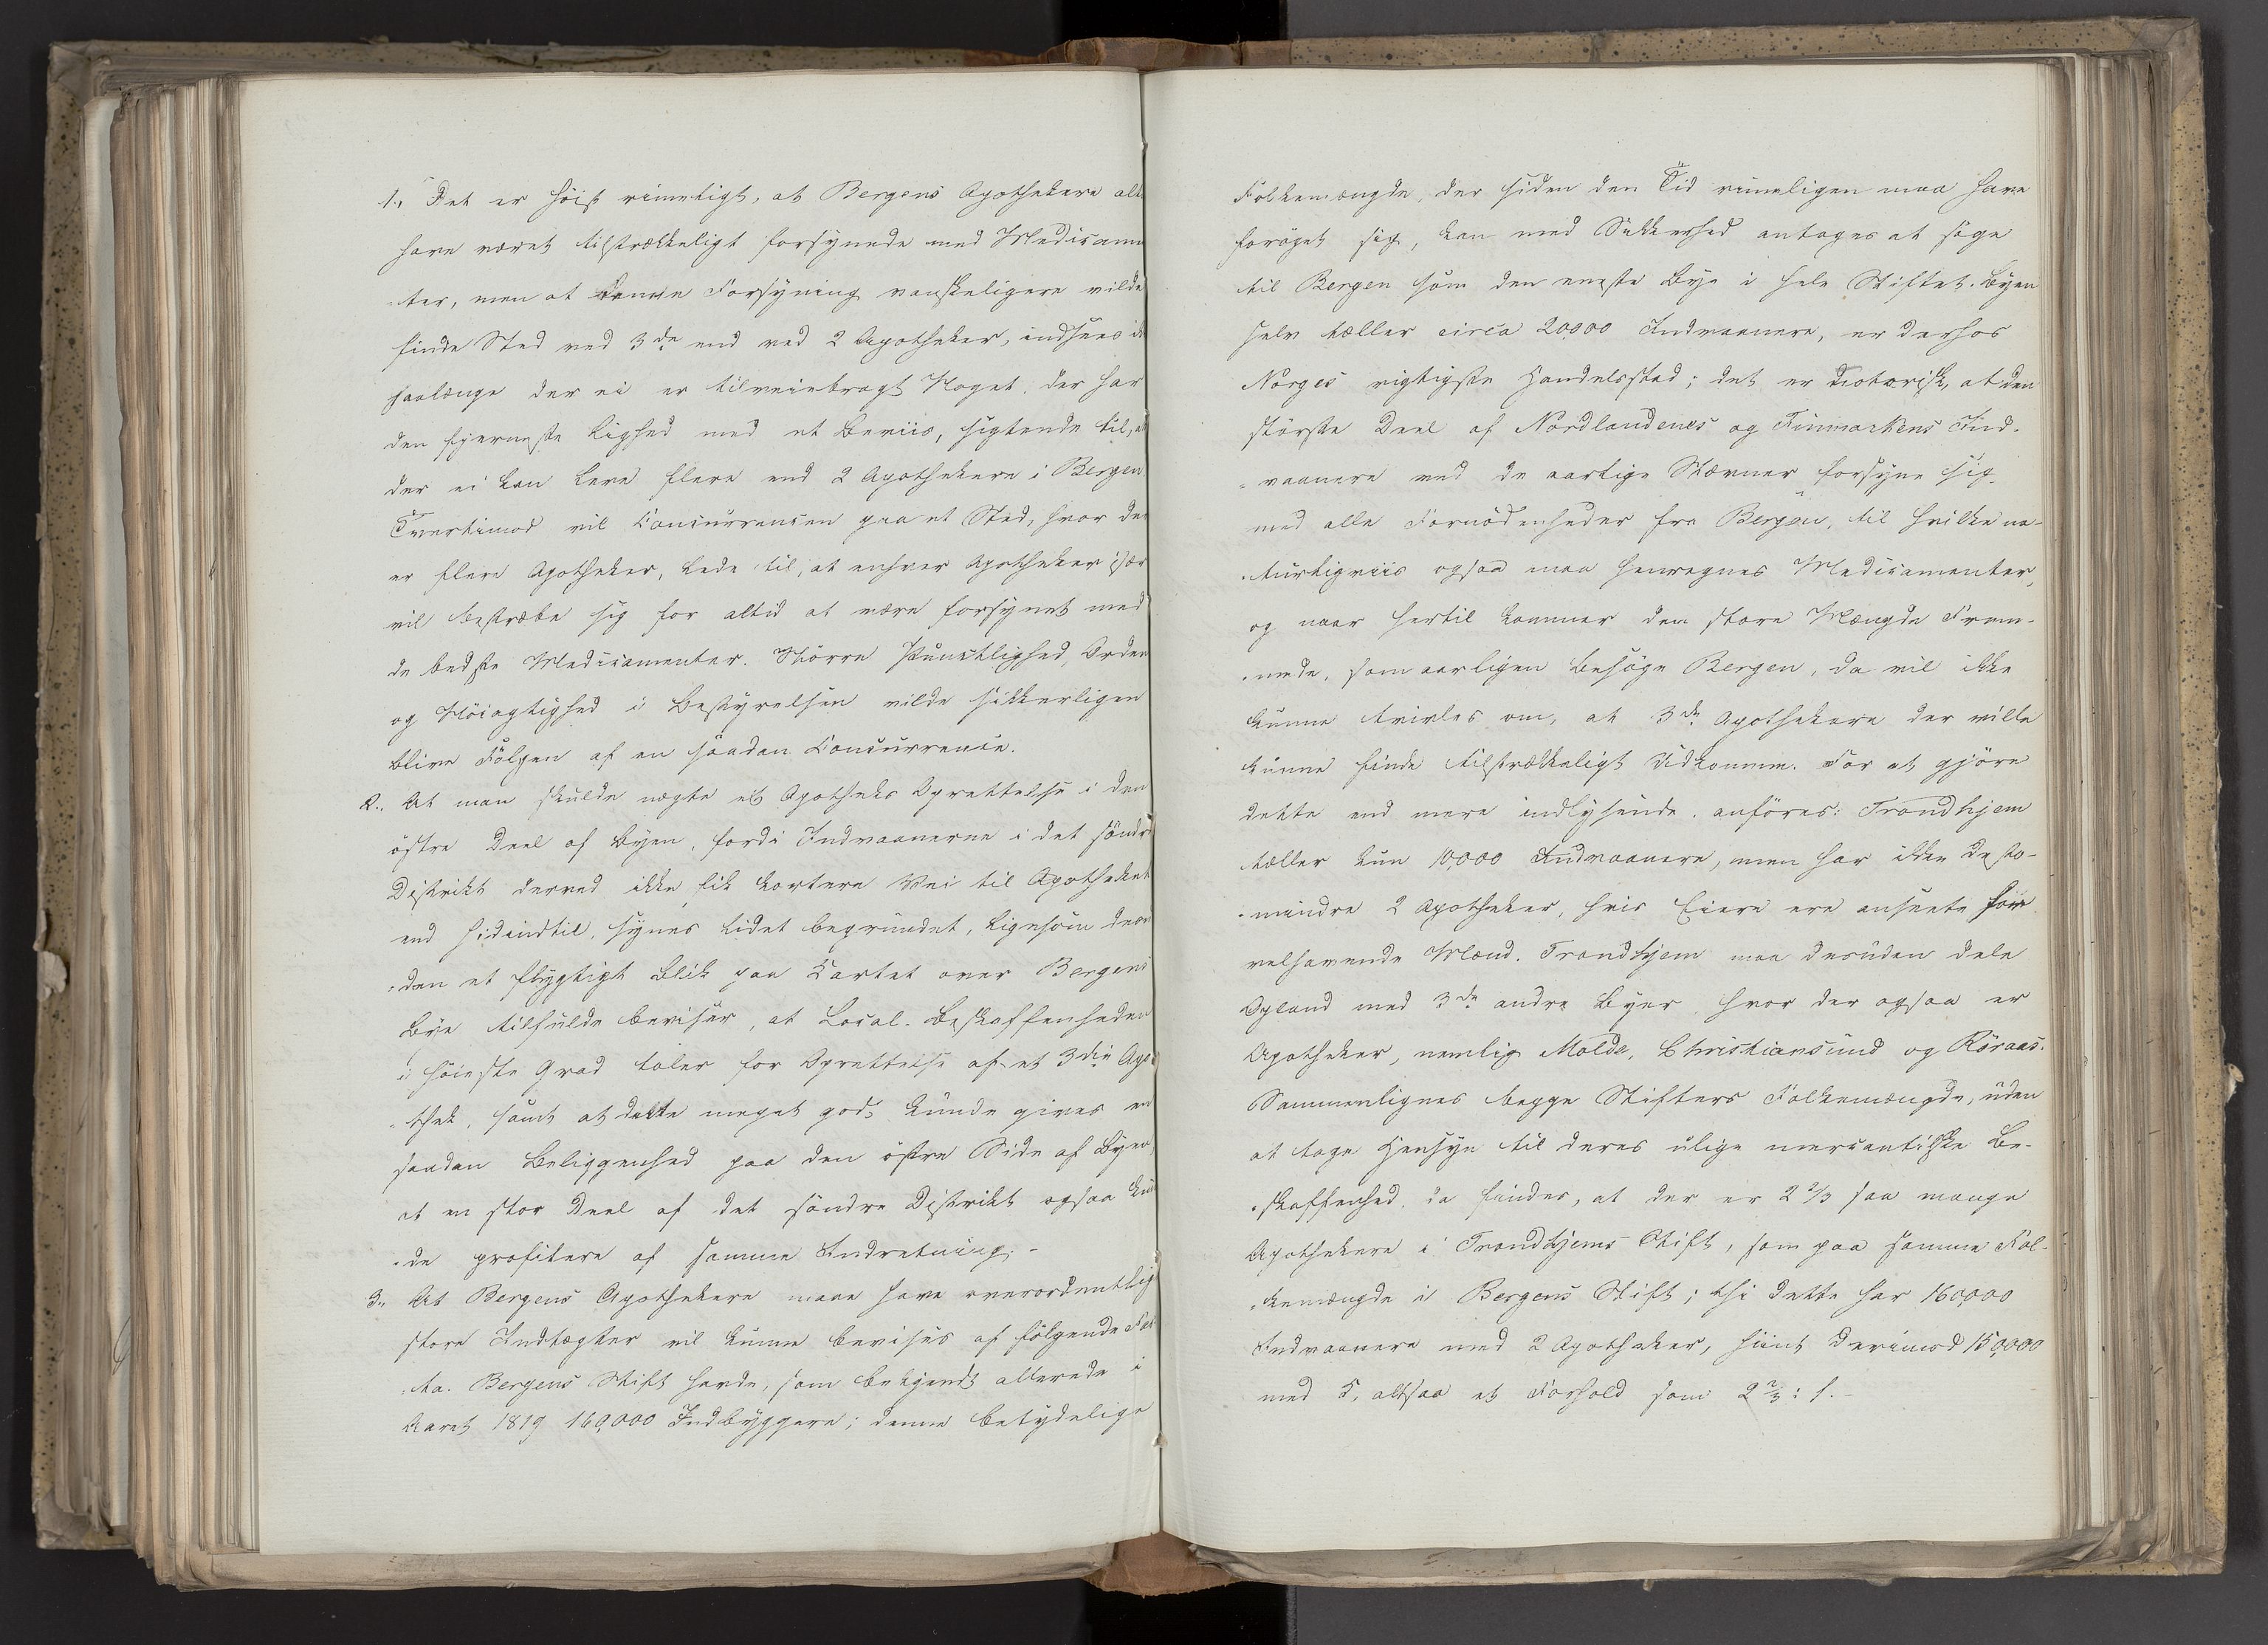 1., Det er høist rimeligt, at Bergens Apothekere alt
have været tilstrækkeligt forsynede med Medicamen
-ter, men at denne Forsyning vanskeligere vilde
finde Sted ved 3de end ved 2 Apotheker, indsees ik
saalænge der ei er tilveiebragt Noget, der har
den fjerneste Lighed med et Beviis, sigtende til, at
der ei kan leve flere end 2 Apothekere i Bergen.
Tvertimod vil Concurrencen paa et Sted, hvor der
er flere Apotheker, lede til, at enhver Apotheker især
vil bestræbe sig for altid at være forsynet med
de bedste Medicamenter. Større Punktlighed, Orden
og Nöiagtighed i Bestyrelsen vilde sikkerligen
blive Fölgen af en saadan Concurrence.
2., At man skulde negte et Apotheks Oprettelse i den
östre Deel af Byen, fordi Indvaanerne i det söndre
Distrikt derved ikke fik kortere Vei til Apotheket
end hidindtil, synes lidet begrundet, ligesom des¬
-den et flygtigt Blik paa Kartet over Bergens
Bye tilfulde beviser, at Local-Beskaffenheden
i höieste Grad taler for Oprettelse af et 3die Apo
-thek, samt at dette meget godt kunde gives en
saadan Beliggenhed paa den östre Side af Byen,
at en stor Deel af det söndre Distrikt ogsaa kun
-de profitere af samme Indretning. -
3., At Bergens Apothekere maae have overordentlig
store Indtægter vil kunne bevises af fölgende Fac
-ta. Bergens Stift havde, som bekjendt allerede i
Aaret 1819 160,000 Indbyggere; denne betydelige
Folkemængde, der siden den Tid rimeligen maa have
foröget sig, kan med Sikkerhed antages at söge
til Bergen som den eneste Bye i hele Stiftet. Byen
selv tæller circa 20000 Indvaanere, er derhos
Norges vigtigste Handelsstad; det er notorisk, at den
störste Deel af Nordlandenes og Finmarkens Ind-
-vaanere ved de aarlige Stævner forsyne sig
med alle Fornödenheder fra Bergen, til hvilke na-
-turligviis ogsaa maa henregnes Medicamenter,
og naar hertil kommer den store Mængde Frem-
-mede, som aarligen besöge Bergen, da vil ikke
kunne tvivles om, at 3de Apothekere der ville
kunne finde tilstrækkeligt Udkomme. For at gjöre
dette end mere indlysende, anföres: Trondhjem
tæller kun 10,000 Indvaanere, men har ikke desto-
-mindre 2 Apotheker, hvis Eiere ere ansete for
velhavende Mænd. Trondhjem maa desuden dele
Opland med 3de andre Byer hvor der ogsaa er
Apotheker, nemlig Molde, Christiansund og Röraas.
Sammenlignes begge Stifters Folkemængde, uden
at tage Hensyn til deres ulige mercantilske Be-
-skaffenhed, da findes, at der er 2 2/3 saa mange
Apothekere i Trondhjems Stift, som paa samme Fol-
-kemængde i Bergens Stift; thi dette har 160,000
Indvaanere med 2 Apotheker, hiint derimod 150,000
med 5, altsaa et Forhold som 2 2/3 : 1. -